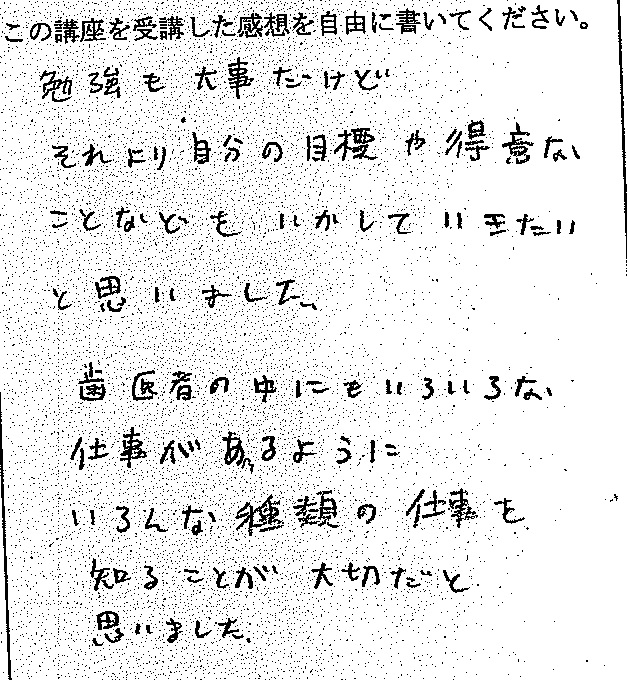 この講座を受講した感想を自由に書いてください。
勉強も大事だけど
それより自分の目標や得意な
ことなどをいかしていきたい
と思いました。
歯医者の中にもいろいろな
仕事があるように
いろんな種類の仕事を
知ることが大切だと
思いました。